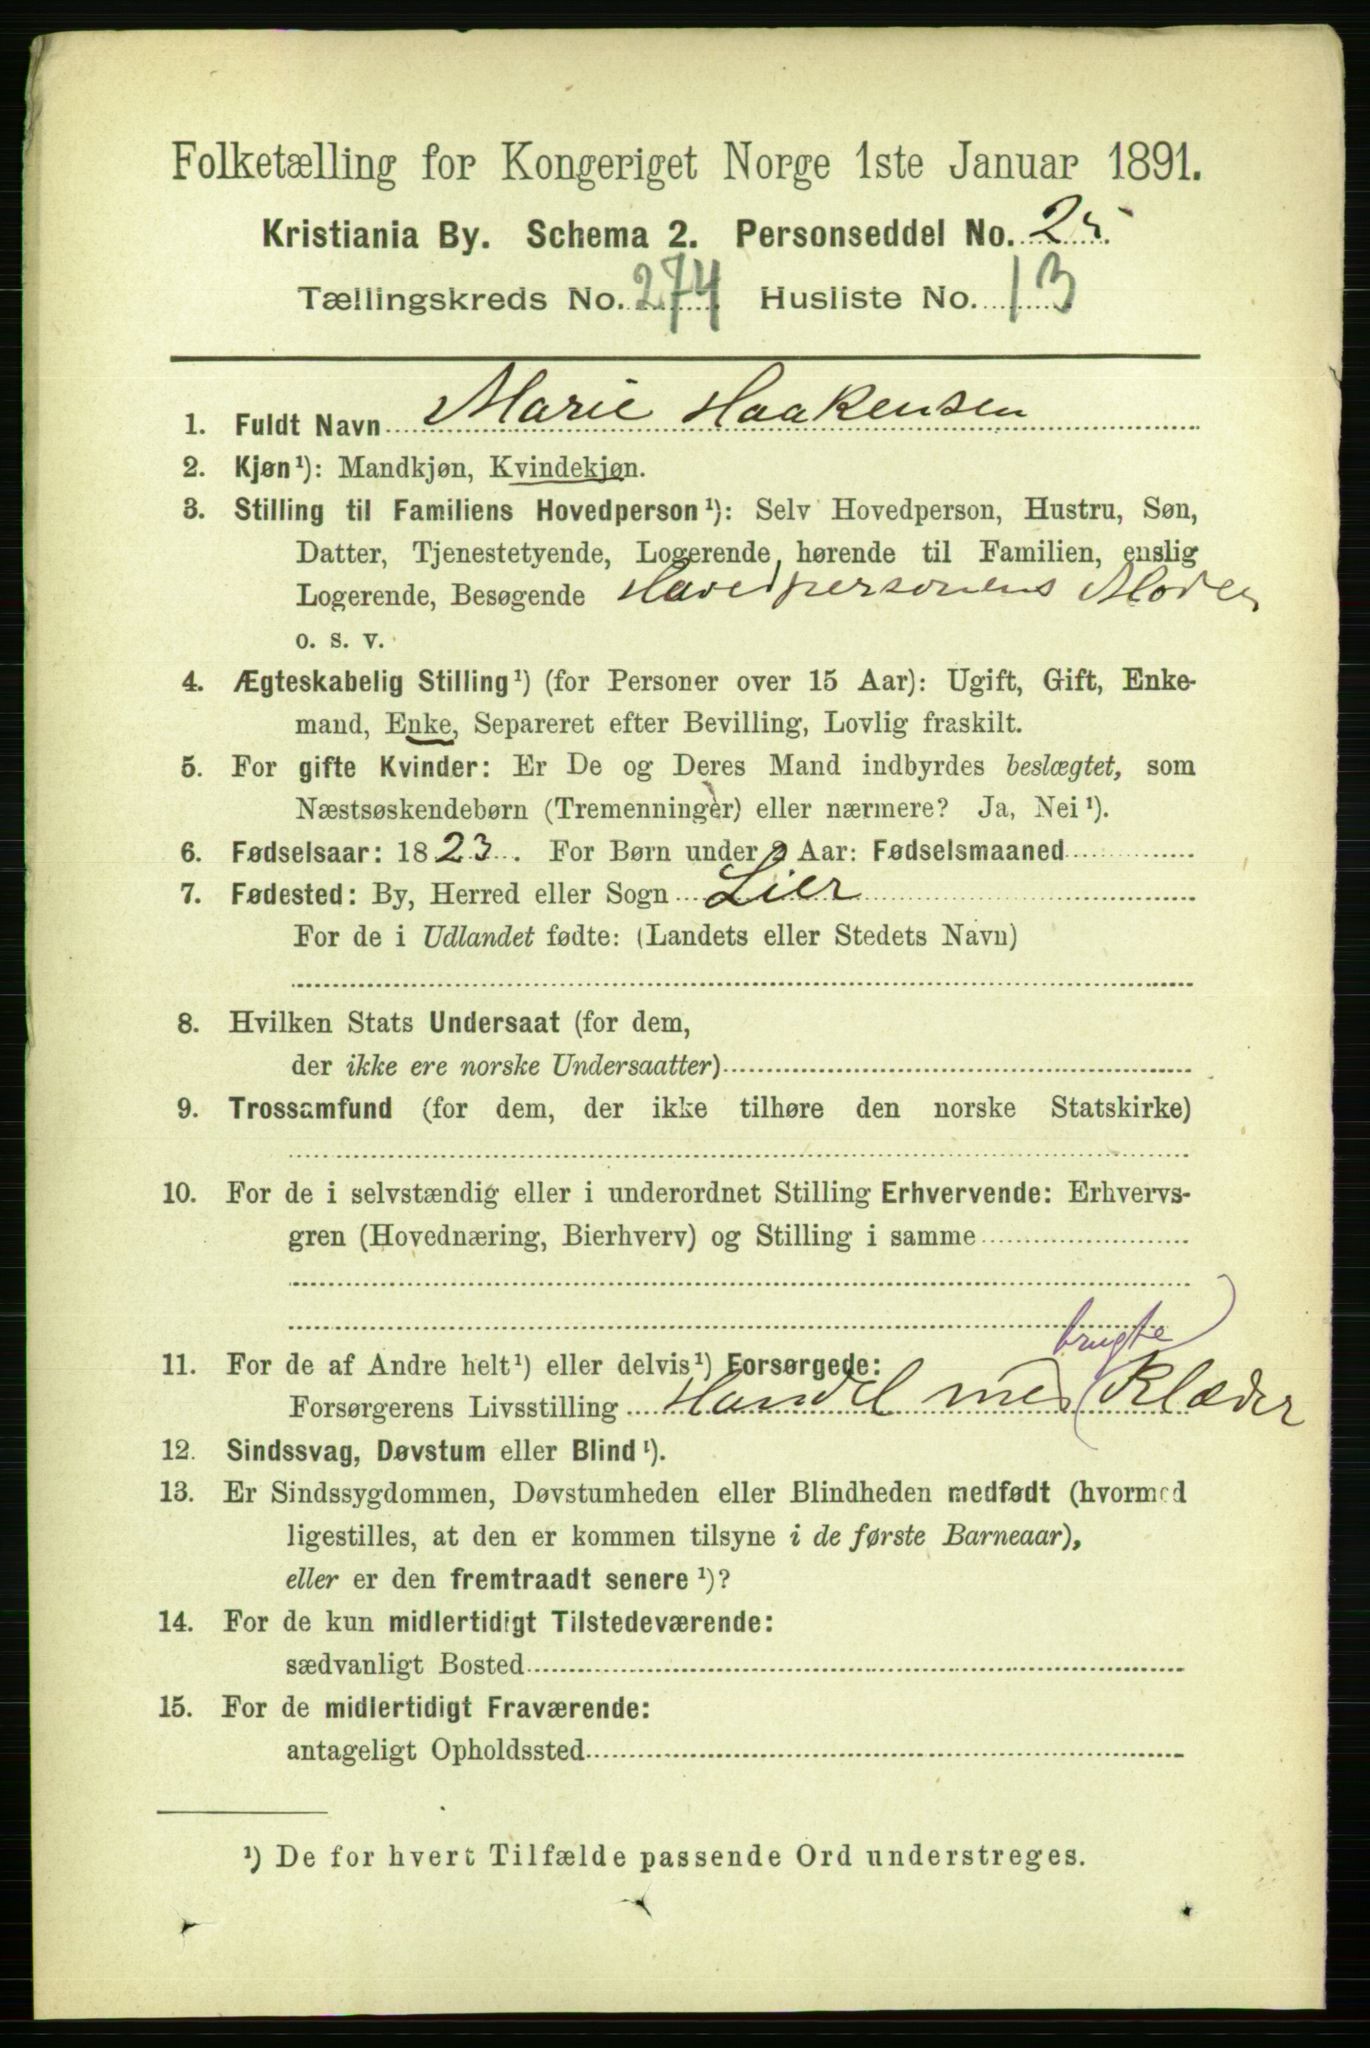 Folketælling for Kongeriget Norge 1ste Januar 1891.
Kristiania By. Schema 2. Personseddel No. 25
Tællingskreds No. 274 Husliste No. 13
1. Fuldt Navn Marie Haakensen
2. Kjøn¹): Mandkjøn, Kvindekjøn.
3. Stilling til Familiens Hovedperson¹): Selv Hovedperson, Hustru, Søn,
Datter, Tjenestetyende, Logerende hørende til Familien, enslig
Logerende, Besøgende Hovedpersonens Moder
o. s. v.
4. Ægteskabelig Stilling¹) (for Personer over 15 Aar): Ugift, Gift, Enke-
mand, Enke, Separeret efter Bevilling, Lovlig fraskilt.
5. For gifte Kvinder: Er De og Deres Mand indbyrdes beslægtet, som
Næstsøskendebørn (Tremenninger) eller nærmere? Ja, Nei¹).
6. Fødselsaar: 1823. For Børn under 2 Aar: Fødselsmaaned
7. Fødested: By, Herred eller Sogn Lier
For de i Udlandet fødte: (Landets eller Stedets Navn)
8. Hvilken Stats Undersaat (for dem,
der ikke ere norske Undersaatter)
9. Trossamfund (for dem, der ikke tilhøre den norske Statskirke)
10. For de i selvstændig eller i underordnet Stilling Erhvervende: Erhvervs-
gren (Hovednæring, Bierhverv) og Stilling i samme
brugte
11. For de af Andre helt¹) eller delvis¹) Forsørgede:
Forsørgerens Livsstilling Handel med Klæder
12. Sindssvag, Døvstum eller Blind¹).
13. Er Sindssygdommen, Døvstumheden eller Blindheden medfødt (hvormed
ligestilles, at den er kommen tilsyne i de første Barneaar),
eller er den fremtraadt senere¹)?
14. For de kun midlertidigt Tilstedeværende:
sædvanligt Bosted
15. For de midlertidigt Fraværende:
antageligt Opholdssted
¹) De for hvert Tilfælde passende Ord understreges.